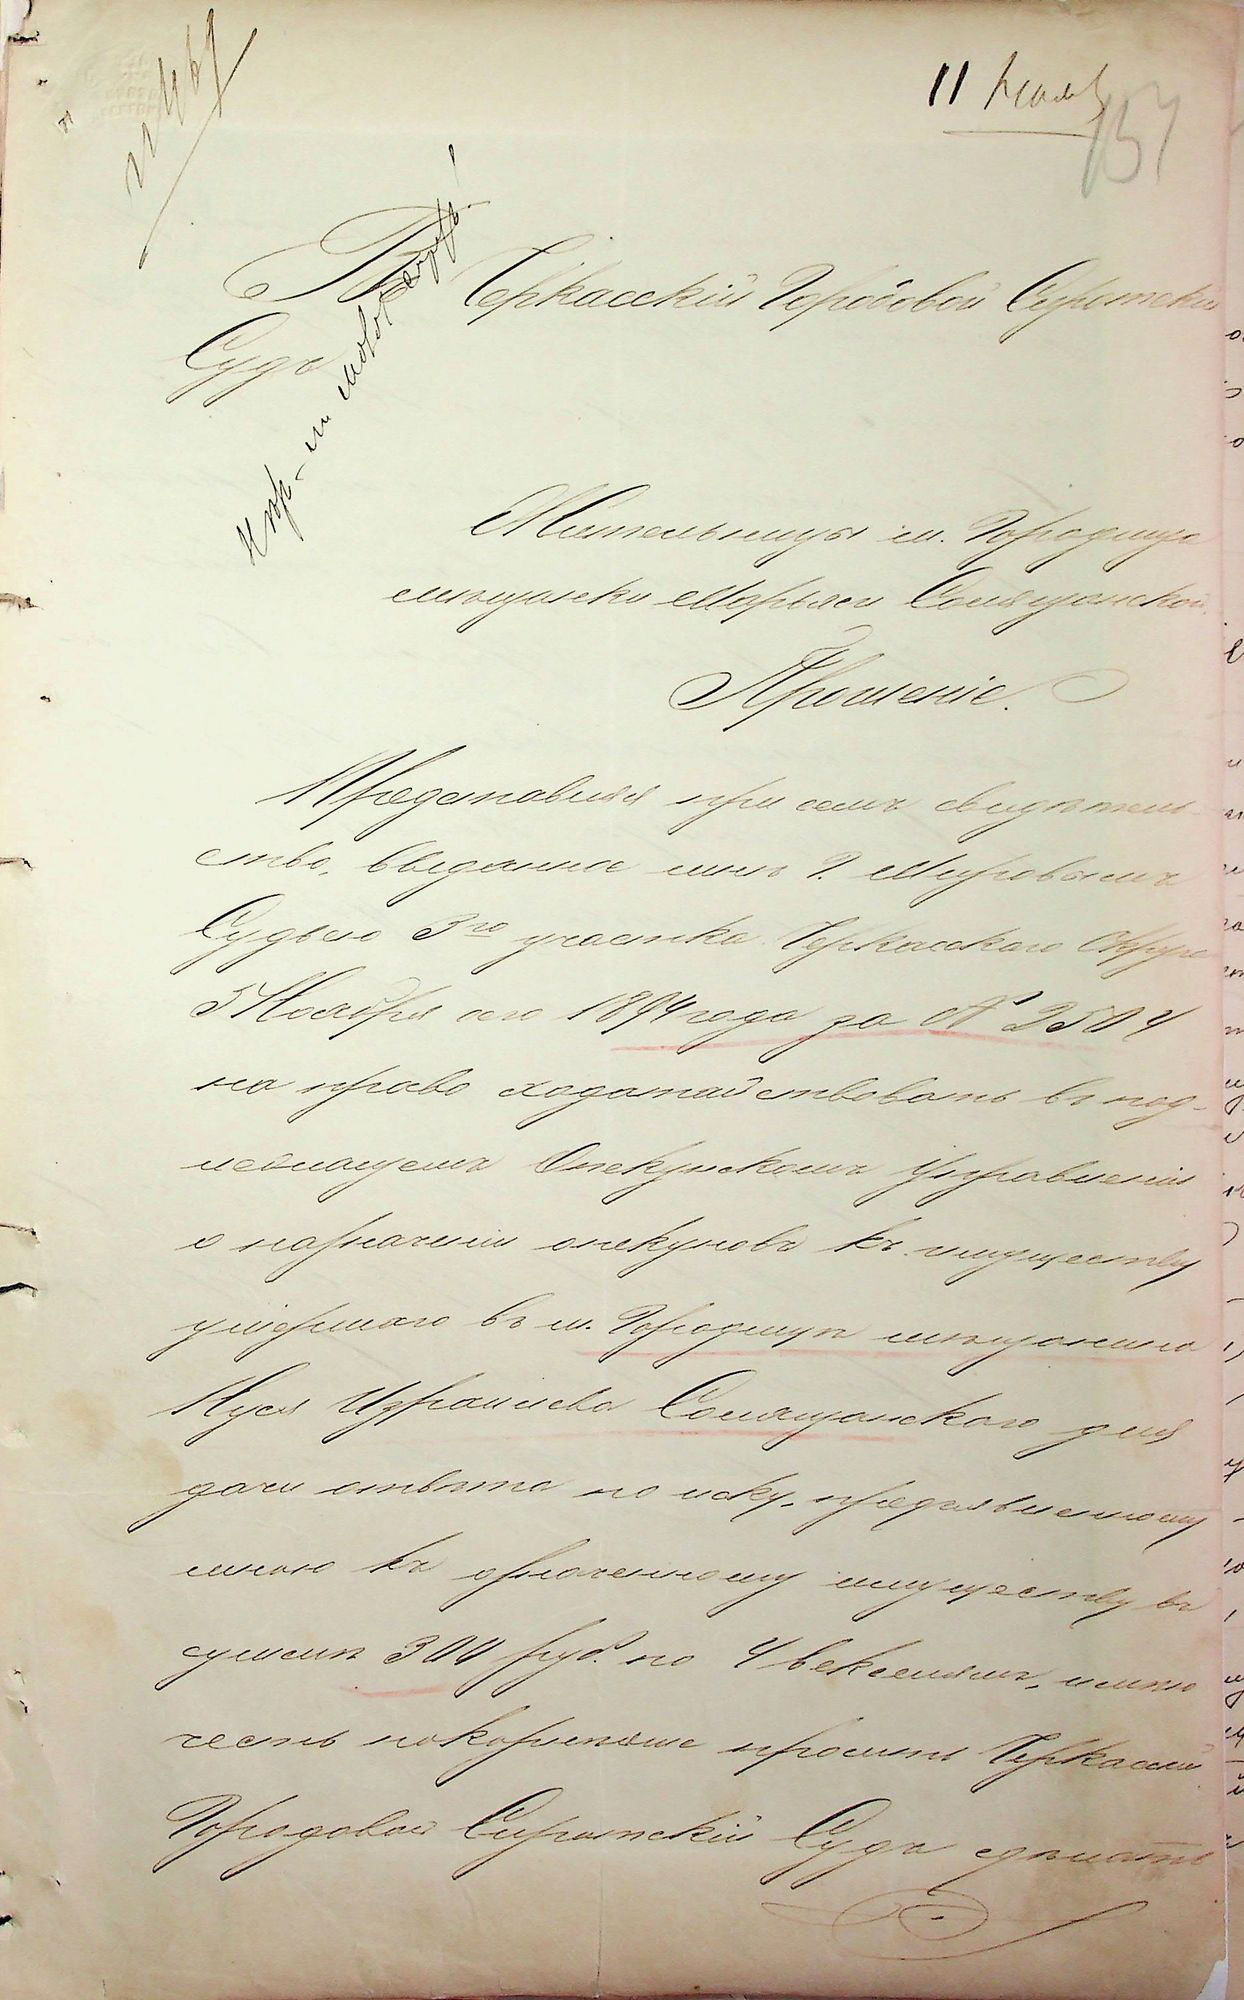 11
157
Въ Черкасскій Городовой Сиротскій
Судъ
Жительницы м. Городища
мѣщанки Марьяси Смѣлянской
Прошеніе.
Представляя при семъ свидѣтель-
ство, выданное мнѣ Г. Мировымъ
Судьею 3го участка Черкасскаго Округа
5 Ноября сего 1894 года за №
на право ходатайствовать въ под-
лежащемъ Опекунскомъ Управленіи
о назначеніи опекуновъ къ имуществу
умершаго въ м. Городищѣ мѣщанина
Израилева для
дачи отвѣта по иску, предъявленному
мною къ означенному имуществу въ
суммѣ 300 руб. по 4 векселямъ, имѣю
честь покорнѣйше просить Черкасскій
Городовой Сиротскій Судъ сдѣлать